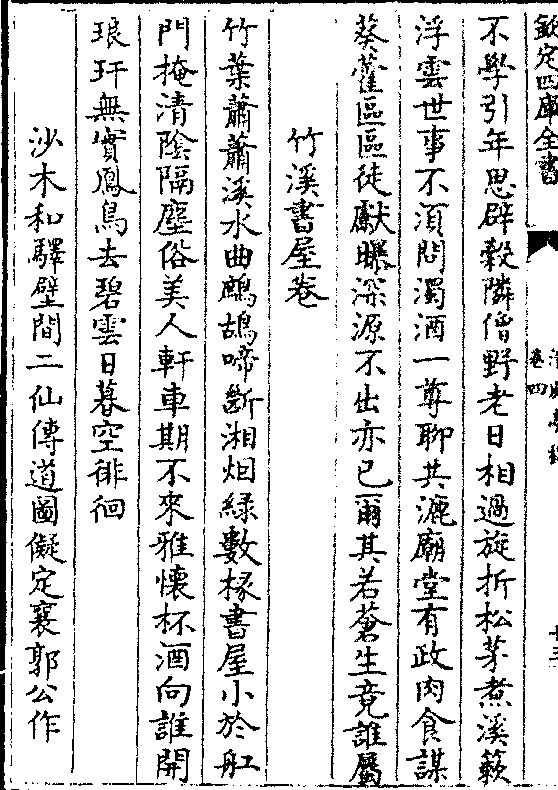 欽定四庫全書
卷四
不學引年思辟穀隣僧野老日相過旋折松茅煮溪蔌
浮雲世事不須問濁酒一尊聊共漉廟堂有政肉食謀
葵藿區區徒獻曝深源不出亦已爾其若蒼生竟誰屬
竹溪書屋卷
竹葉蕭蕭溪水曲鷓鴣啼斷湘烟緑數椽書屋小於舡
門掩清陰隔塵俗美人軒車期不來雅懷杯酒向誰開
琅玕無實鳳鳥去碧雲日暮空徘徊
沙木和驛壁間二仙傳道圖儗定襄郭公作